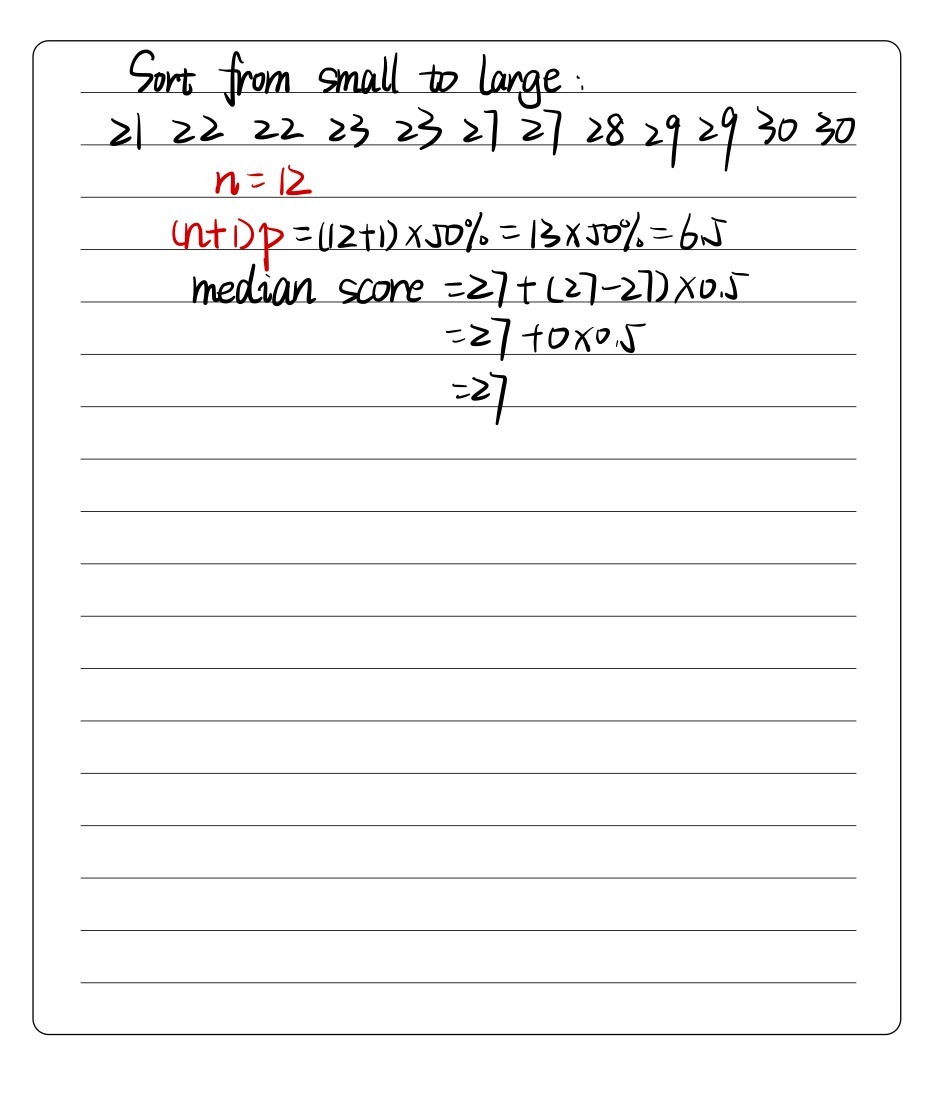 Sort from small to large:
21 22 22 23 23 27 27 28 29 29 30 30
n = 12
(n+1)p = (12+1)×50% = 13×50% = 6.5
median score = 27+(27-27)×0.5
= 27+0×0.5
= 27